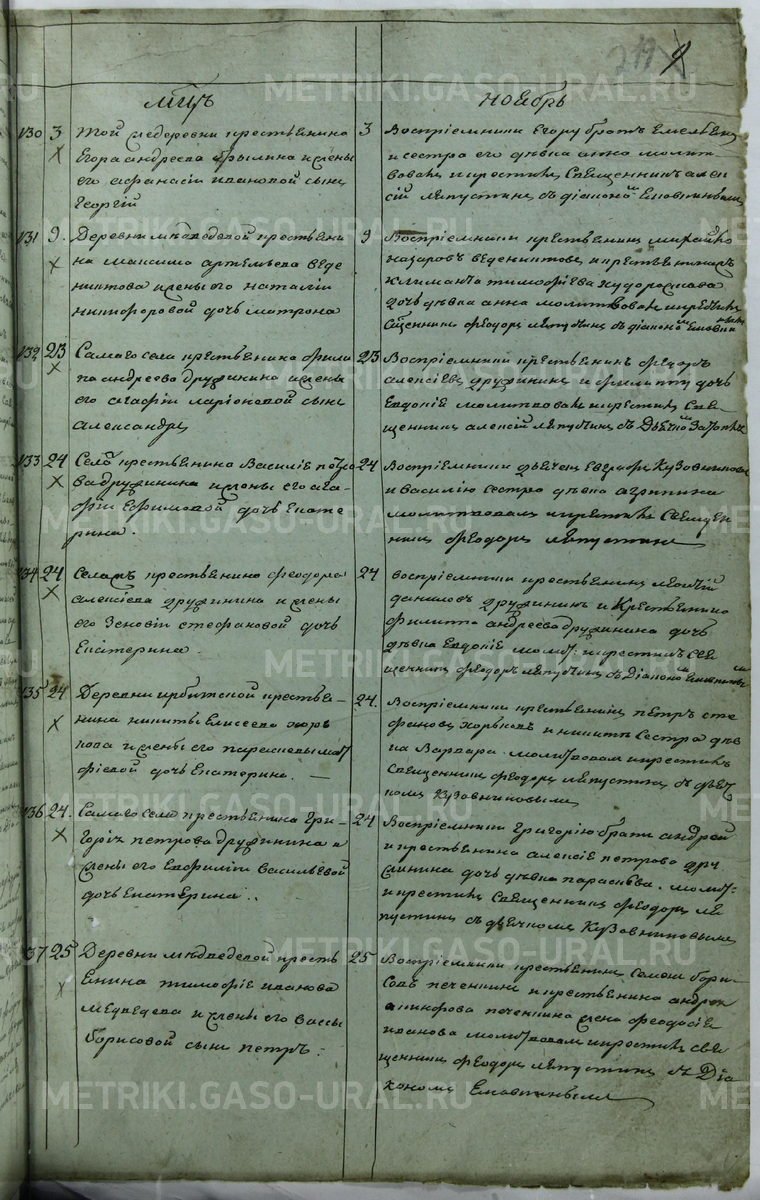 219
мцъ
ноебрь
130 3 Той же деревни крестьенина
Егора андреева
его афанасіи ивановой сынъ
Георгій
3 Воспріемники Егору братъ Емельенъ
и сестра его дѣвка анна молит-
вовалъ и крестилъ Священникъ алек-
сій лепустинъ съ діакономъ
131 9. Деревни медведевой крестьени
на максима артемьева веде
никтова и жены его наталіи
никифоровой дочь матрона
9 Воспріемники крестьенинъ михайло
назаровъ ведениктовъ и крестьенина
климанта тимофеева худорожкова
дочь дѣвка анна молитвовалъ и крестилъ
Сщенникъ феодоръ лепустинъ съ діакономъ
132 23 Самаго села крестьенина фили
па андреева дружинина и жены
его агафіи ларіоновой сынъ
александръ
23 Воспріемники крестьенинъ феодоръ
алексіевъ дружининъ и филиппу дочь
Евдокіе молитвовалъ и крестилъ Све-
щенникъ алексій лепустинъ съ дьечкомъ
133 24 Села крестьенина Василіе петро
ва дружинина и жены его ага-
фіи Ефимовой дочь Екате
рина.
24 Воспріемники дьечекъ Кузовниковъ
и василію сестра дѣвка агрипина
молитвовалъ и крестилъ Свещен-
никъ феодоръ лепустинъ
134 24 Села крестьенина феодора
алексіева дружинина и жены
его Зеновіи стефановой дочь
Екатерина.
24 воспріемники крестьенинъ
даниловъ дружининъ и Крестьенина
филиппа андреева дружинина дочь
дѣвка Евдокіе молит: и крестилъ Све-
щенникъ феодоръ лепустинъ съ діакономъ
135 24 Деревни ирбитской крестье-
нина никиты Елисеева хорь
кова и жены его парасковьи мат
фіевой дочь Екатерина.
24. Воспріемники крестьенинъ петръ сте
фановъ хорьковъ и никиты Сестра дѣв
ка Варвара. молитвовалъ и крестилъ
Священникъ феодоръ лепустинъ съ дьеч
комъ Кузовниковымъ
136 24. Самаго села крестьенина Гри-
горіе петрова дружинина и
жены его Васильевой
дочь Екатерина..
24 Воспріемники Григорію братъ андрей
и крестьенина алексіе петрова дру
жинина дочь дѣвка парасковьа. молит:
и крестилъ Священникъ феодоръ ле
пустинъ съ дьечкомъ Кузовниковымъ
137 25 Деревни медведевой кресть
Енина тимофіе иванова
медведева и жены его вассы
борисовой сынъ петръ:
25 Воспріемники крестьенинъ бори
совъ печенкинъ и крестьенина андрея
печенкина жена феодосіе
иванова молитвовалъ и крестилъ све
щенникъ феодоръ лепустинъ съ Діа
кономъ
METRIKI.GASO-URAL.RU